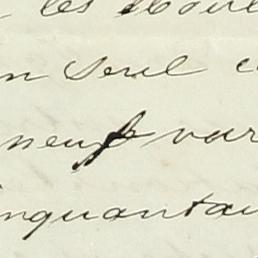 les
n seul
neuf var
inquantai